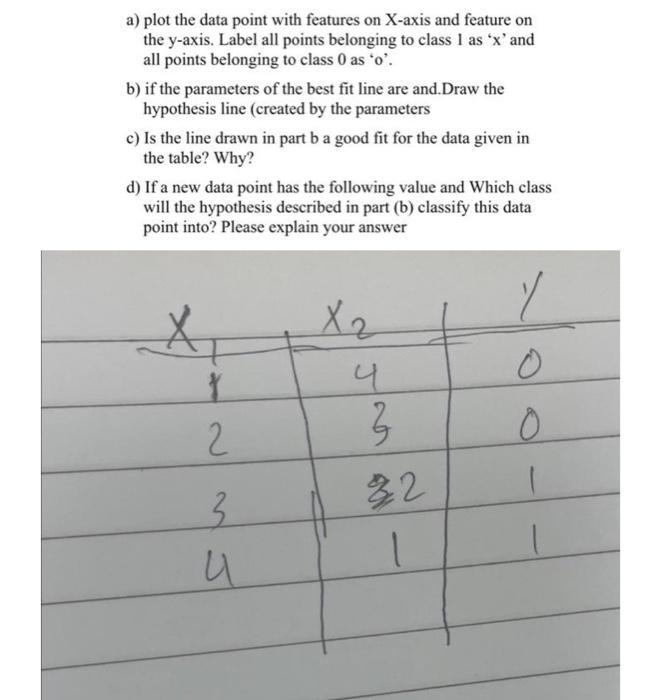 a) plot the data point with features on X-axis and feature on
the y-axis. Label all points belonging to class 1 as ‘x’ and
all points belonging to class 0 as ‘o’.
b) if the parameters of the best fit line are and.Draw the
hypothesis line (created by the parameters
c) Is the line drawn in part b a good fit for the data given in
the table? Why?
d) If a new data point has the following value and Which class
will the hypothesis described in part (b) classify this data
point into? Please explain your answer
X1 X2 Y
1 4 0
2 3 0
3 2 1
4 1 1